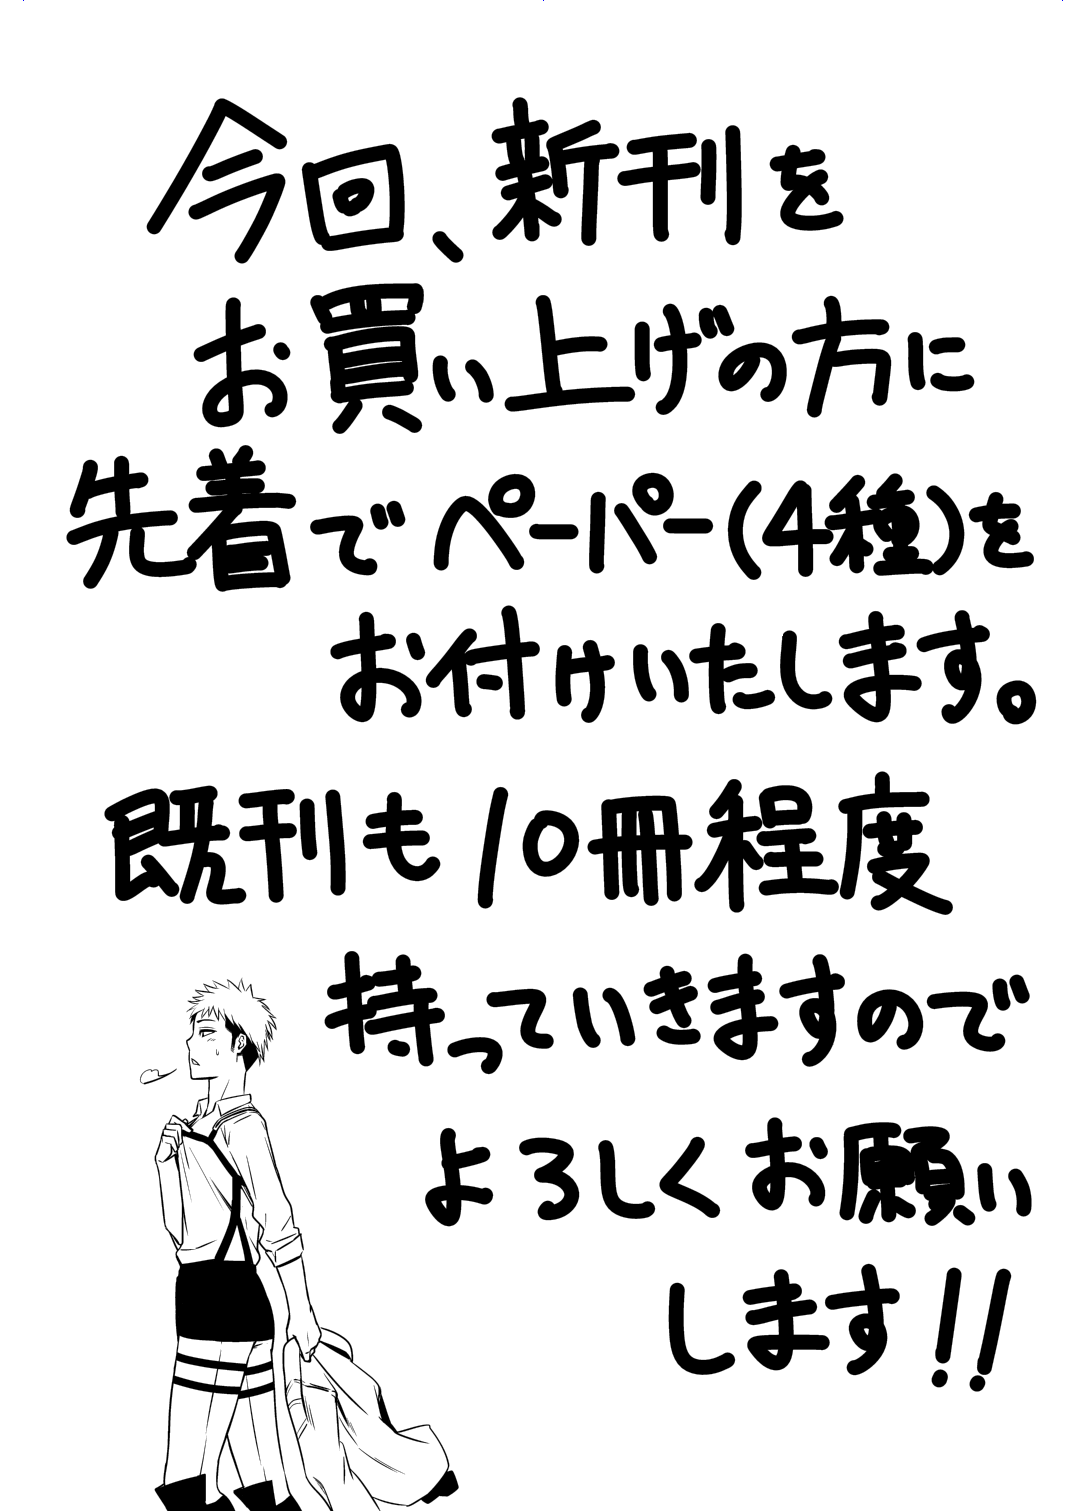 今回、新刊を
お買い上げの方に
先着でペーパー(4種)を
お付けいたします。
既刊も10冊程度
持っていきますので
よろしくお願い
します!!